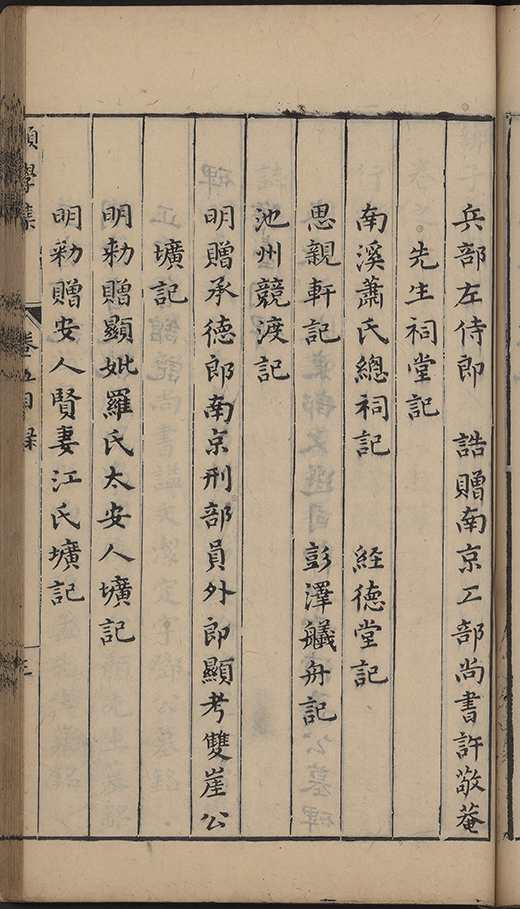 兵部左侍郎　誥贈南京工部尚書許敬菴
先生祠堂記
南溪蕭氏總祠記　経德堂記
思親軒記　彭澤艤舟記
池州競渡記
明贈承德郎南京刑部員外郎顯考雙崖公
壙記
明勅贈顯妣羅氏太安人壙記
明勅贈安人賢妻江氏壙記
學集